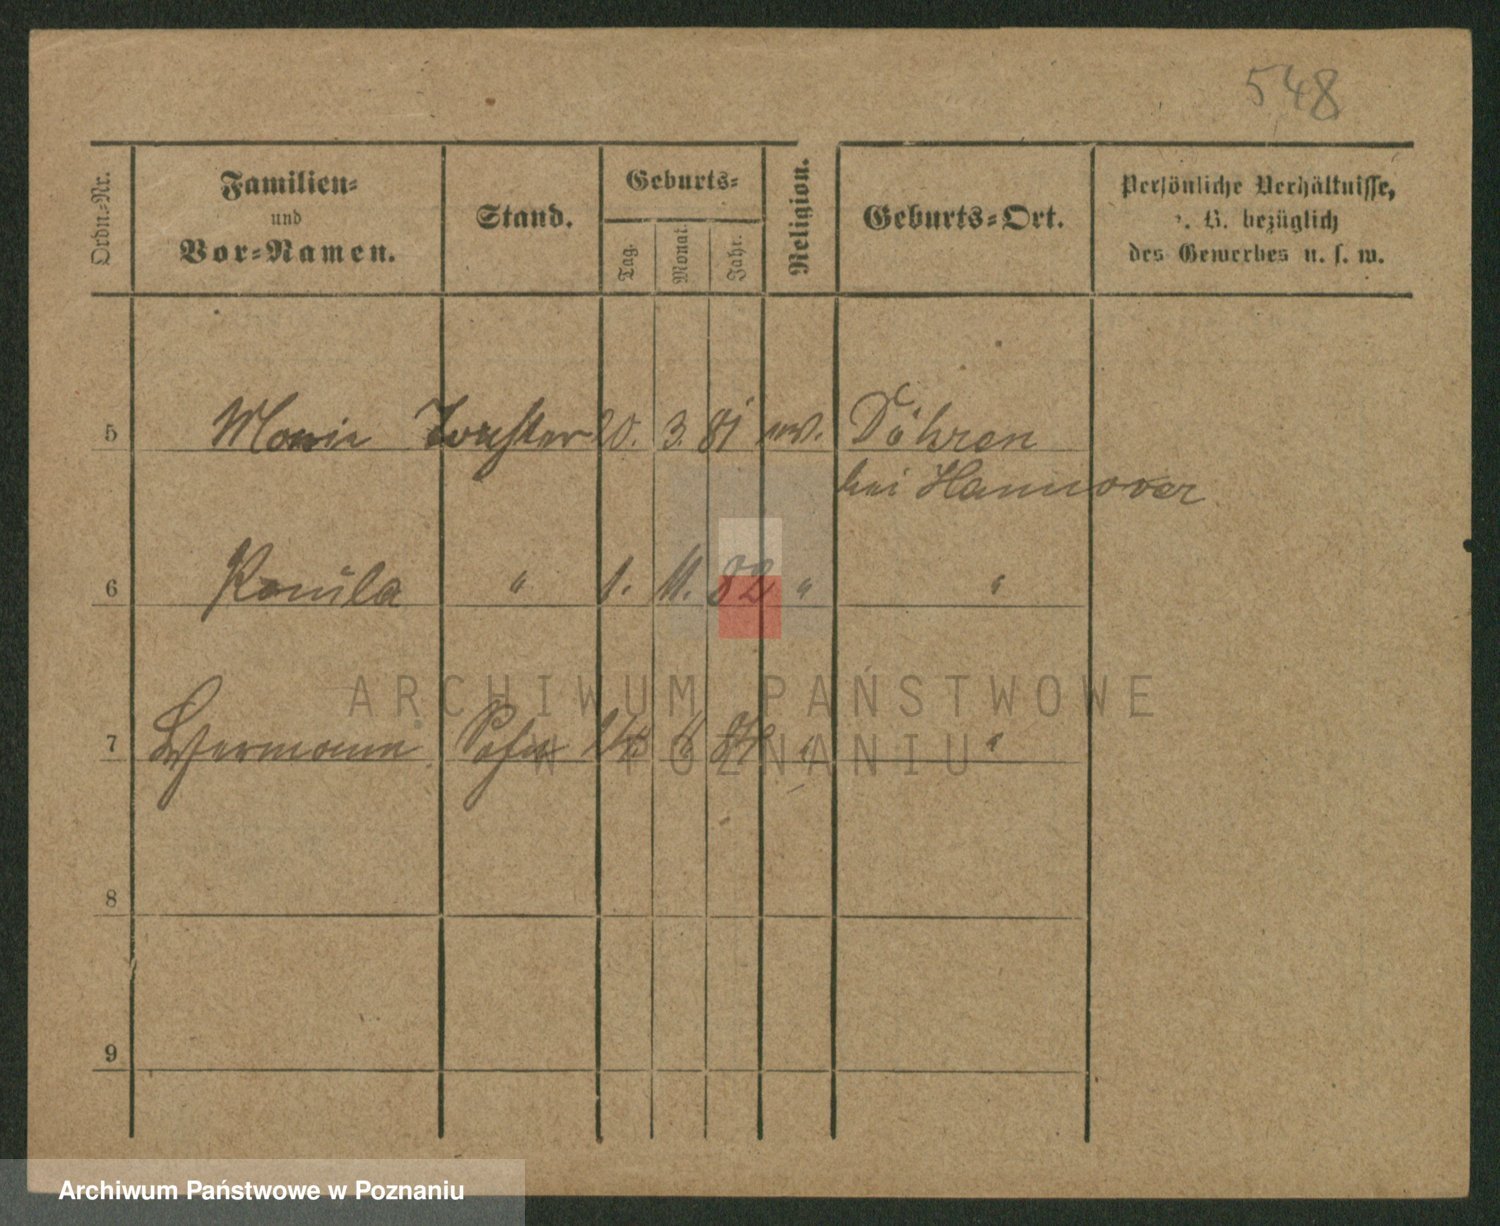 548
Ordn.-Nr.
Familien-
und
Vor-Namen.
Stand.
Geburts-
Tag.
Monat.
Jahr.
Religion.
Geburts-Ort.
Persönliche Verhältnisse,
z. B. bezüglich
des Gewerbes u. s. w.
5 Marie Tochter 20. 3. 81 Döhren
bei Hannover
6 Paula " 1. 11. 82 " "
7 Hermann Sohn 84 " "
8
9
ARCHIWUM PAŃSTWOWE
W POZNANIU
Archiwum Państwowe w Poznaniu